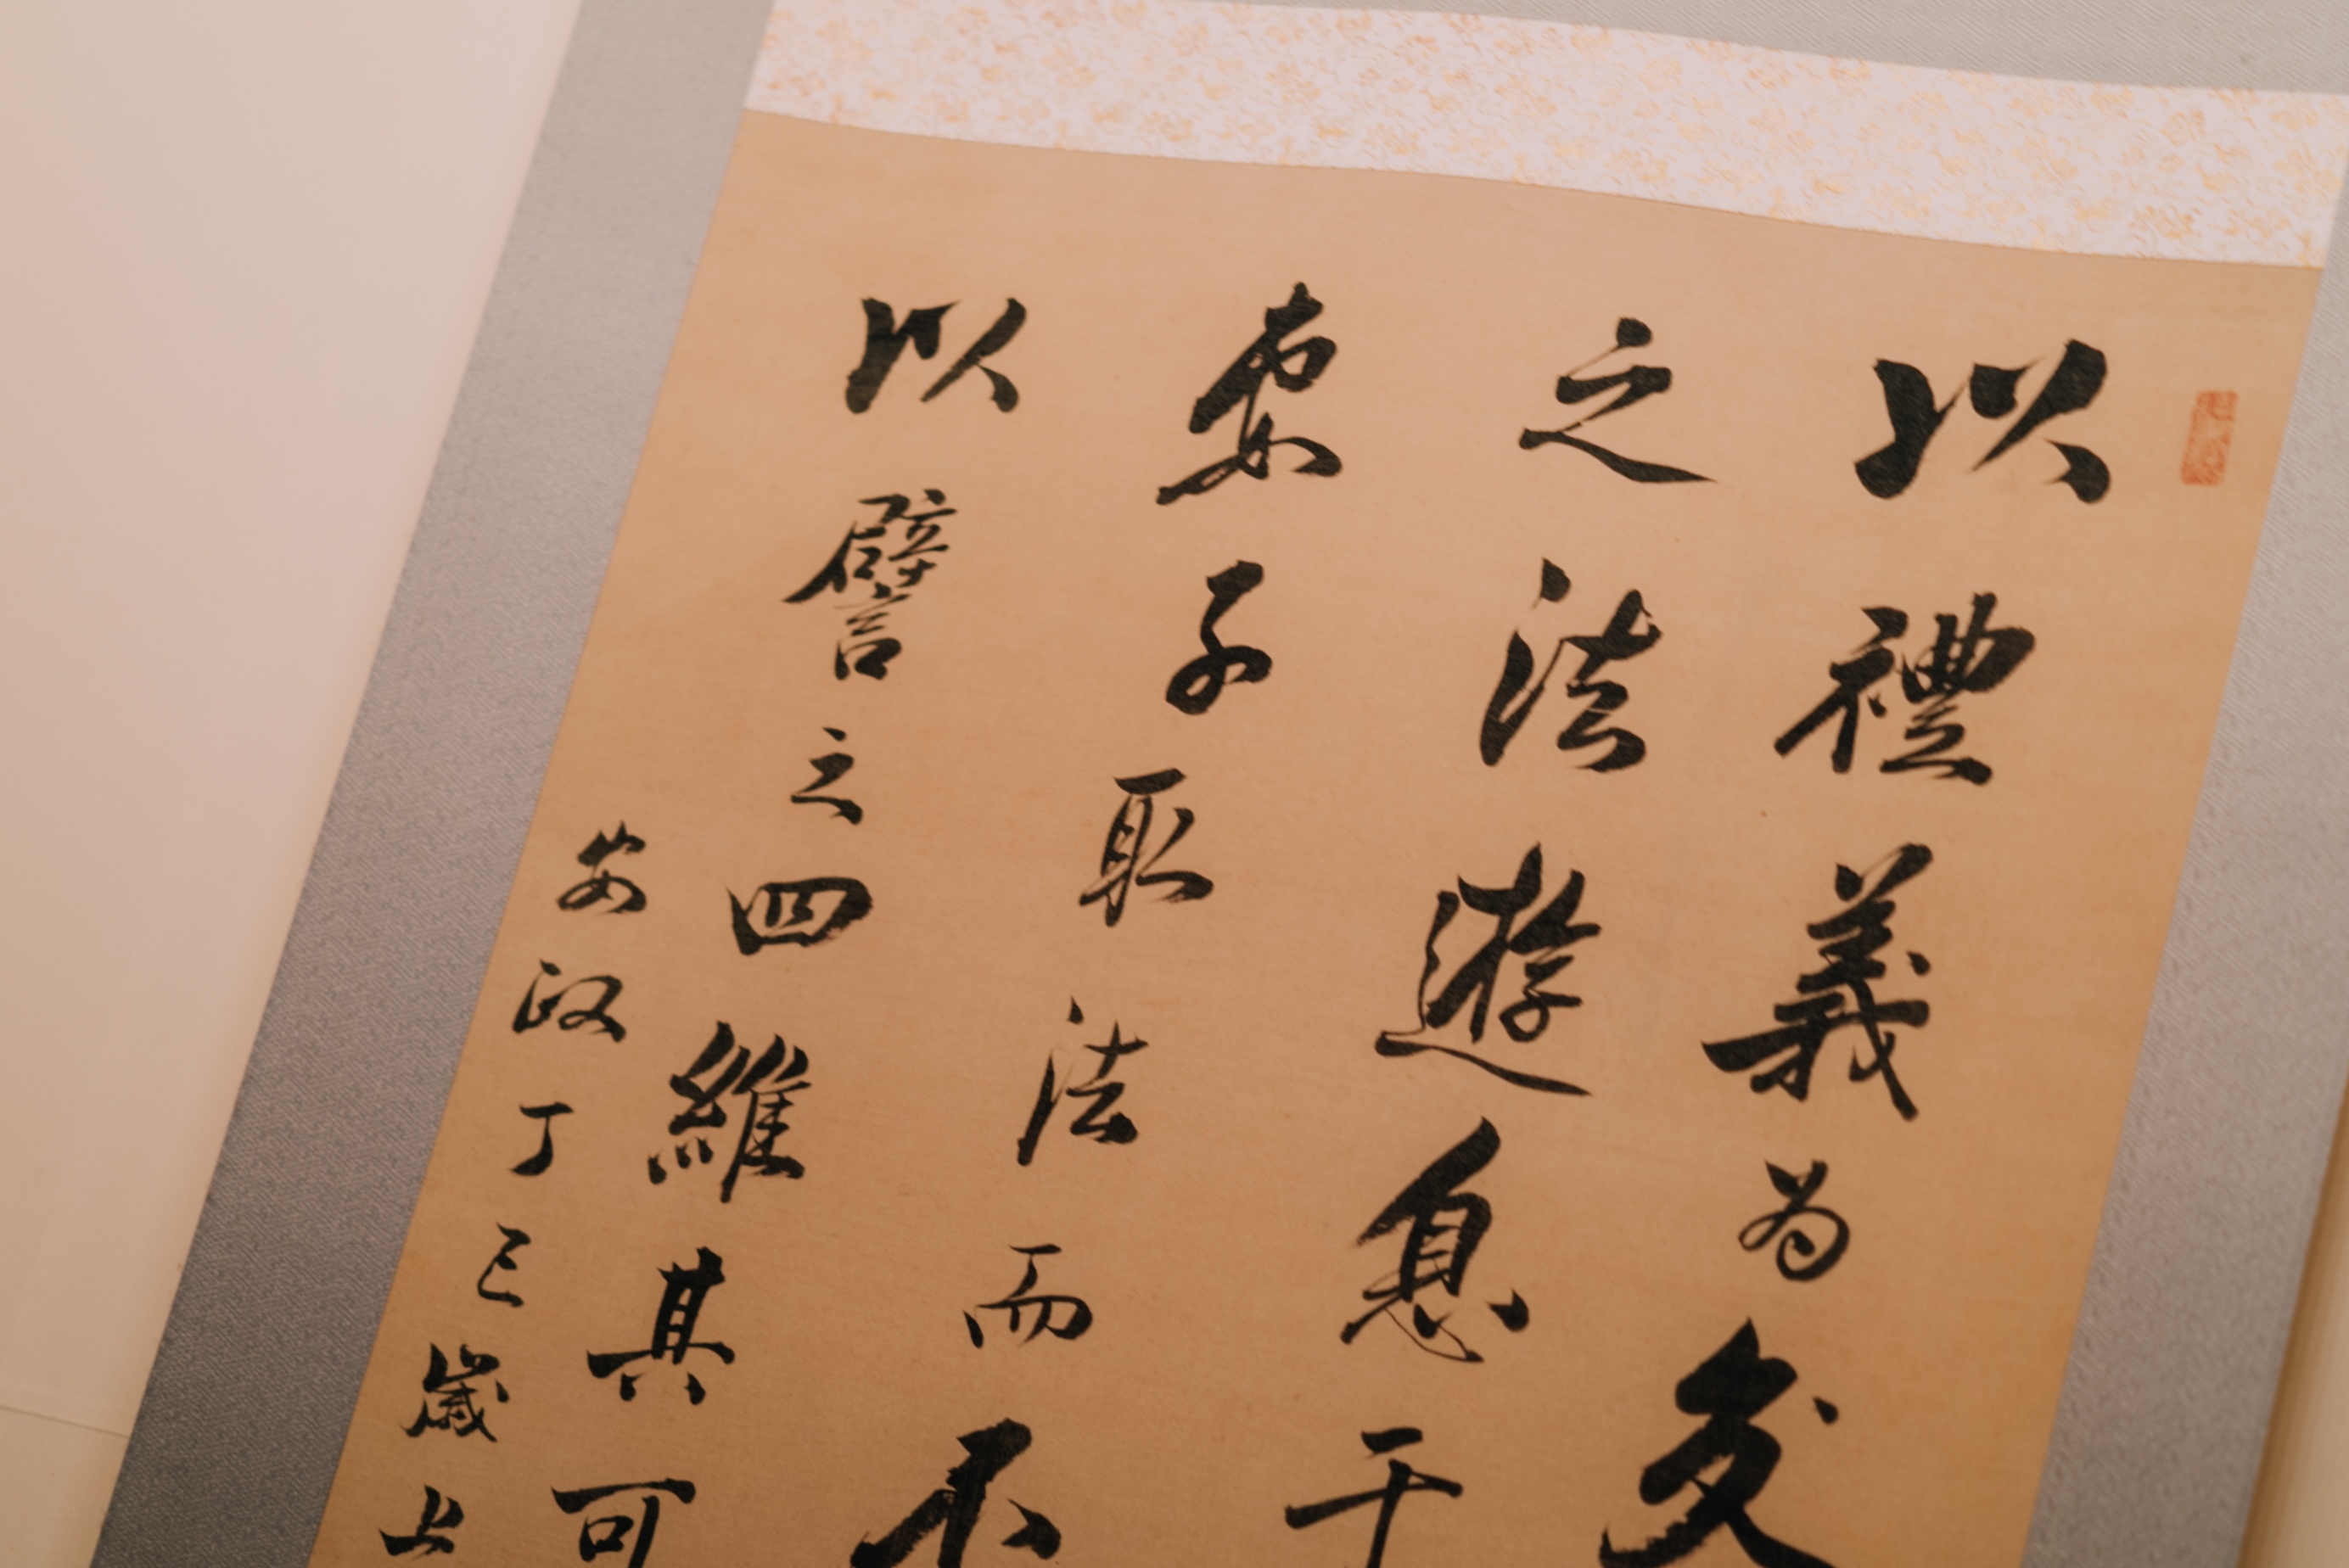 以禮義為交
之法遊息于
要子取法而不
以譬之四維其可
安政丁巳歲上